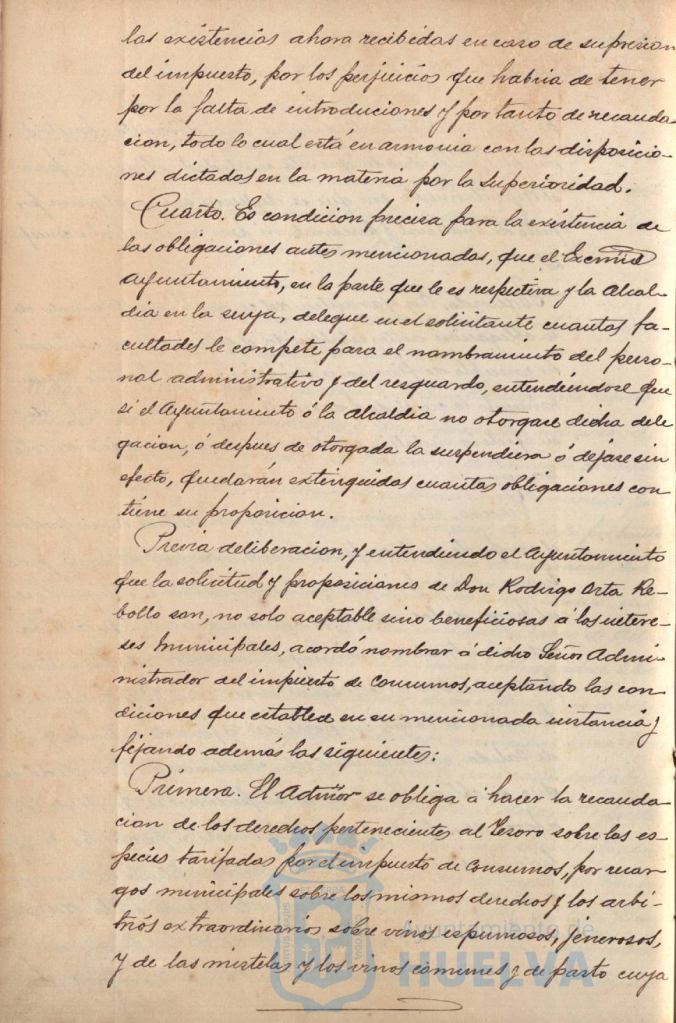 las existencias ahora recibidas en caso de supresion
del impuesto, por los perjuicios que habria de tener
por la falta de introduciones y por tanto de recauda
cion, todo lo cual está en armonia con las disposicio-
nes dictadas en la materia por la Superioridad.
Cuarto. Es condicion precisa para la existencia de
las obligaciones antes mencionadas, que el Excmo
Ayuntamiento, en la parte que le es respectiva y la Alcal-
dia en la suya, delegue en el solicitante cuantas fa-
cultades le compete para el nombramiento del perso-
nal administrativo y del resguardo, entendiendose que
si el Ayuntamiento ó la Alcaldia no otorgase dicha dele
gacion, ó despues de otorgada la suspendiera ó dejase sin
efecto, quedarán extinguidas cuantas obligaciones con
tiene su proposicion.
Previa deliberacion, y entendiendo el Ayuntamiento
que la solicitud y proposiciones de Don Rodrigo Orta Re-
bollo son, no solo aceptable sino beneficiosas á los intere-
ses municipales, acordó nombrar á dicho Señor Admi-
nistrador del impuesto de Consumos, aceptando las con
diciones que establece en su mencionada instancia y
fijando además las siguientes:
Primera. El Admor se obliga á hacer la recauda
cion de los derechos pertenecientes al Tesoro sobre las es
pecies tarifadas por el impuesto de Consumos, por recar
gos municipales sobre los mismos derechos y los arbi-
trios extraordinarios sobre vinos espumosos, jenerosos,
y de las mistelas y los vinos comunes y de pasto cuya
Ayuntamiento de
HUELVA